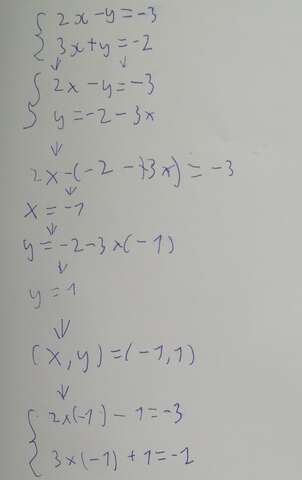 { 2x-y=-3
3x+y=-2
↓ ↓
{ 2x-y=-3
y=-2-3x
↓
2x-(-2-3x)=-3
↓
x=-1
↓
y=-2-3×(-1)
↓
y=1
↓
(x,y)=(-1,1)
↓
{ 2×(-1)-1=-3
3×(-1)+1=-2